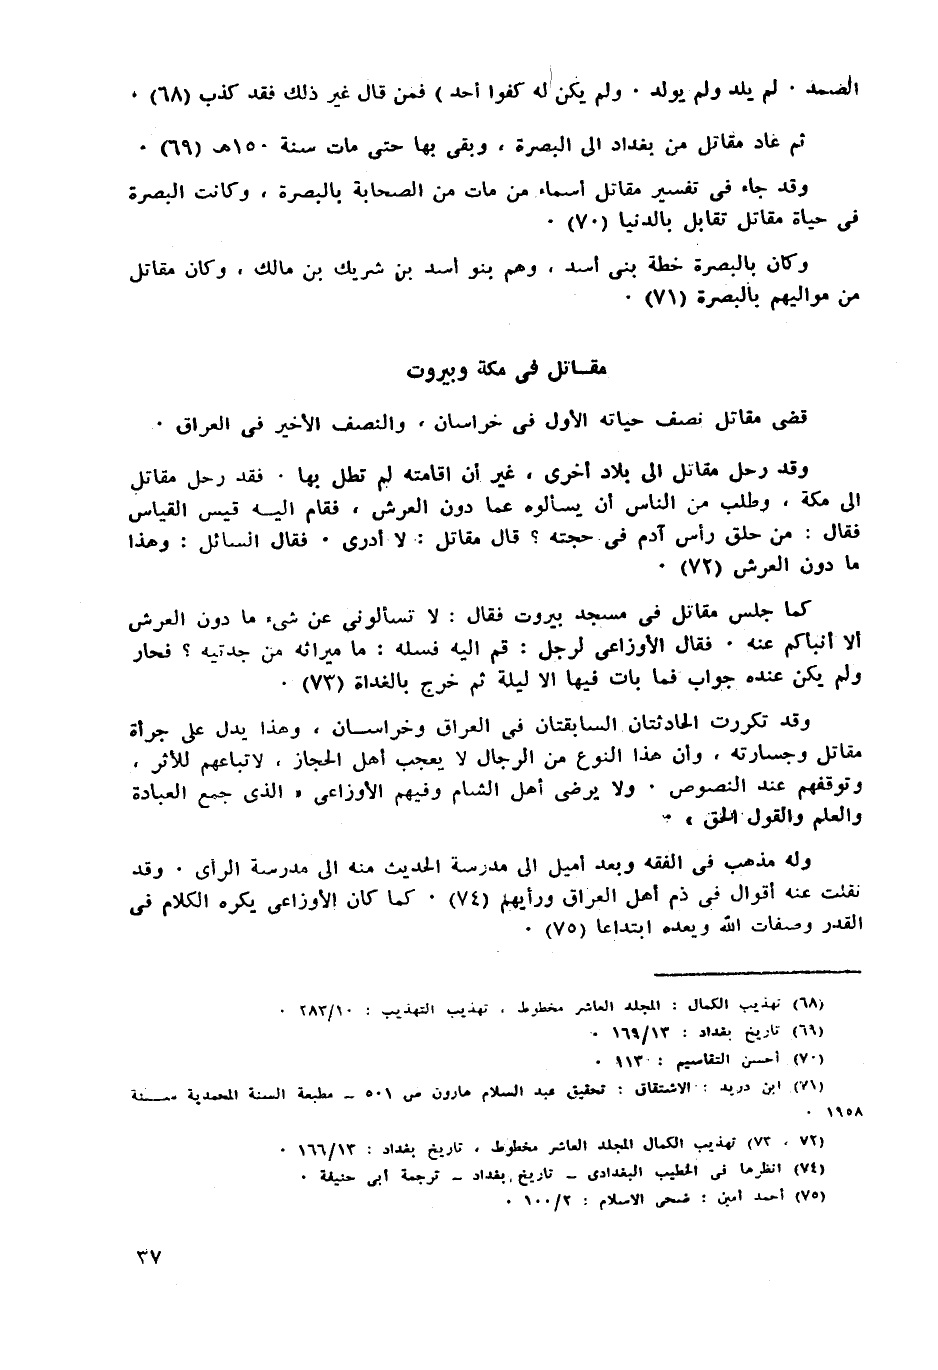 الصمد ٠ لم يلد ولم يولد ٠ ولم يكن له كفوا أحد ) فمن قال غير ذلك فقد كذب (٦٨) ٠
ثم عاد مقاتل من بغداد الى البصرة ، وبقى بها حتى مات سنة ١٥٠هـ (٦٩) ٠
وقد جاء فى تفسير مقاتل أسماء من مات من الصحابة بالبصرة ، وكانت البصرة
فى حياة مقاتل تقابل بالدنيا (٧٠) ٠
وكان بالبصرة خطة بنى أسد ، وهم بنو أسد بن شريك بن مالك ، وكان مقاتل
من مواليهم بالبصرة (٧١) ٠
مقـاتل فى مكة وبيروت
قضى مقاتل نصف حياته الأول فى خراسان ، والنصف الأخير فى العراق ٠
وقد رحل مقاتل الى بلاد أخرى ، غير أن اقامته لم تطل بها ٠ فقد رحل مقاتل
الى مكة ، وطلب من الناس أن يسألوه عما دون العرش ، فقام اليـه قيس القياس
فقال : من حلق رأس آدم فى حجته ؟ قال مقاتل : لا أدرى ٠ فقال السائل : وهذا
ما دون العرش (٧٢) ٠
كما جلس مقاتل فى مسجد بيروت فقال : لا تسألونى عن شىء ما دون العرش
ألا أنبأكم عنه ٠ فقال الأوزاعى لرجل : قم اليه فسله : ما ميراثه من جدتيه ؟ فحار
ولم يكن عنده جواب فما بات فيها الا ليلة ثم خرج بالغداة (٧٣) ٠
وقد تكررت الحادثتان السابقتان فى العراق وخراسـان ، وهذا يدل على جرأة
مقاتل وجسارته ، وأن هذا النوع من الرجال لا يعجب أهل الحجاز ، لاتباعهم للأثر ،
وتوقفهم عند النصوص ٠ ولا يرضى أهل الشام وفيهم الأوزاعى « الذى جمع العبادة
والعلم والقول الحق » ٠
وله مذهب فى الفقه ويعد أميل الى مدرسة الحديث منه الى مدرسة الرأى ٠ وقد
نقلت عنه أقوال فى ذم أهل العراق ورأيهم (٧٤) ٠ كما كان الأوزاعى يكره الكلام فى
القدر وصفات الله ويعده ابتداعا (٧٥) ٠
(٦٨) تهذيب الكمال : المجلد العاشر مخطوط ، تهذيب التهذيب : ٢٨٣/١٠ ٠
(٦٩) تاريخ بغداد : ١٦٩/١٣ ٠
(٧٠) أحسن التقاسيم : ١١٣ ٠
(٧١) ابن دريد : الاشتقاق : تحقيق عبد السلام هارون ص ٥٠١ ـ مطبعة السنة المحمدية سـنة
١٩٥٨ ٠
(٧٢ ، ٧٣) تهذيب الكمال المجلد العاشر مخطوط ، تاريخ بغداد : ١٦٦/١٣ ٠
(٧٤) انظرها فى الخطيب البغدادى ـ تاريخ بغداد ـ ترجمة أبى حنيفة ٠
(٧٥) أحمد أمين : ضحى الاسلام : ١٠٠/٢ ٠
٣٧